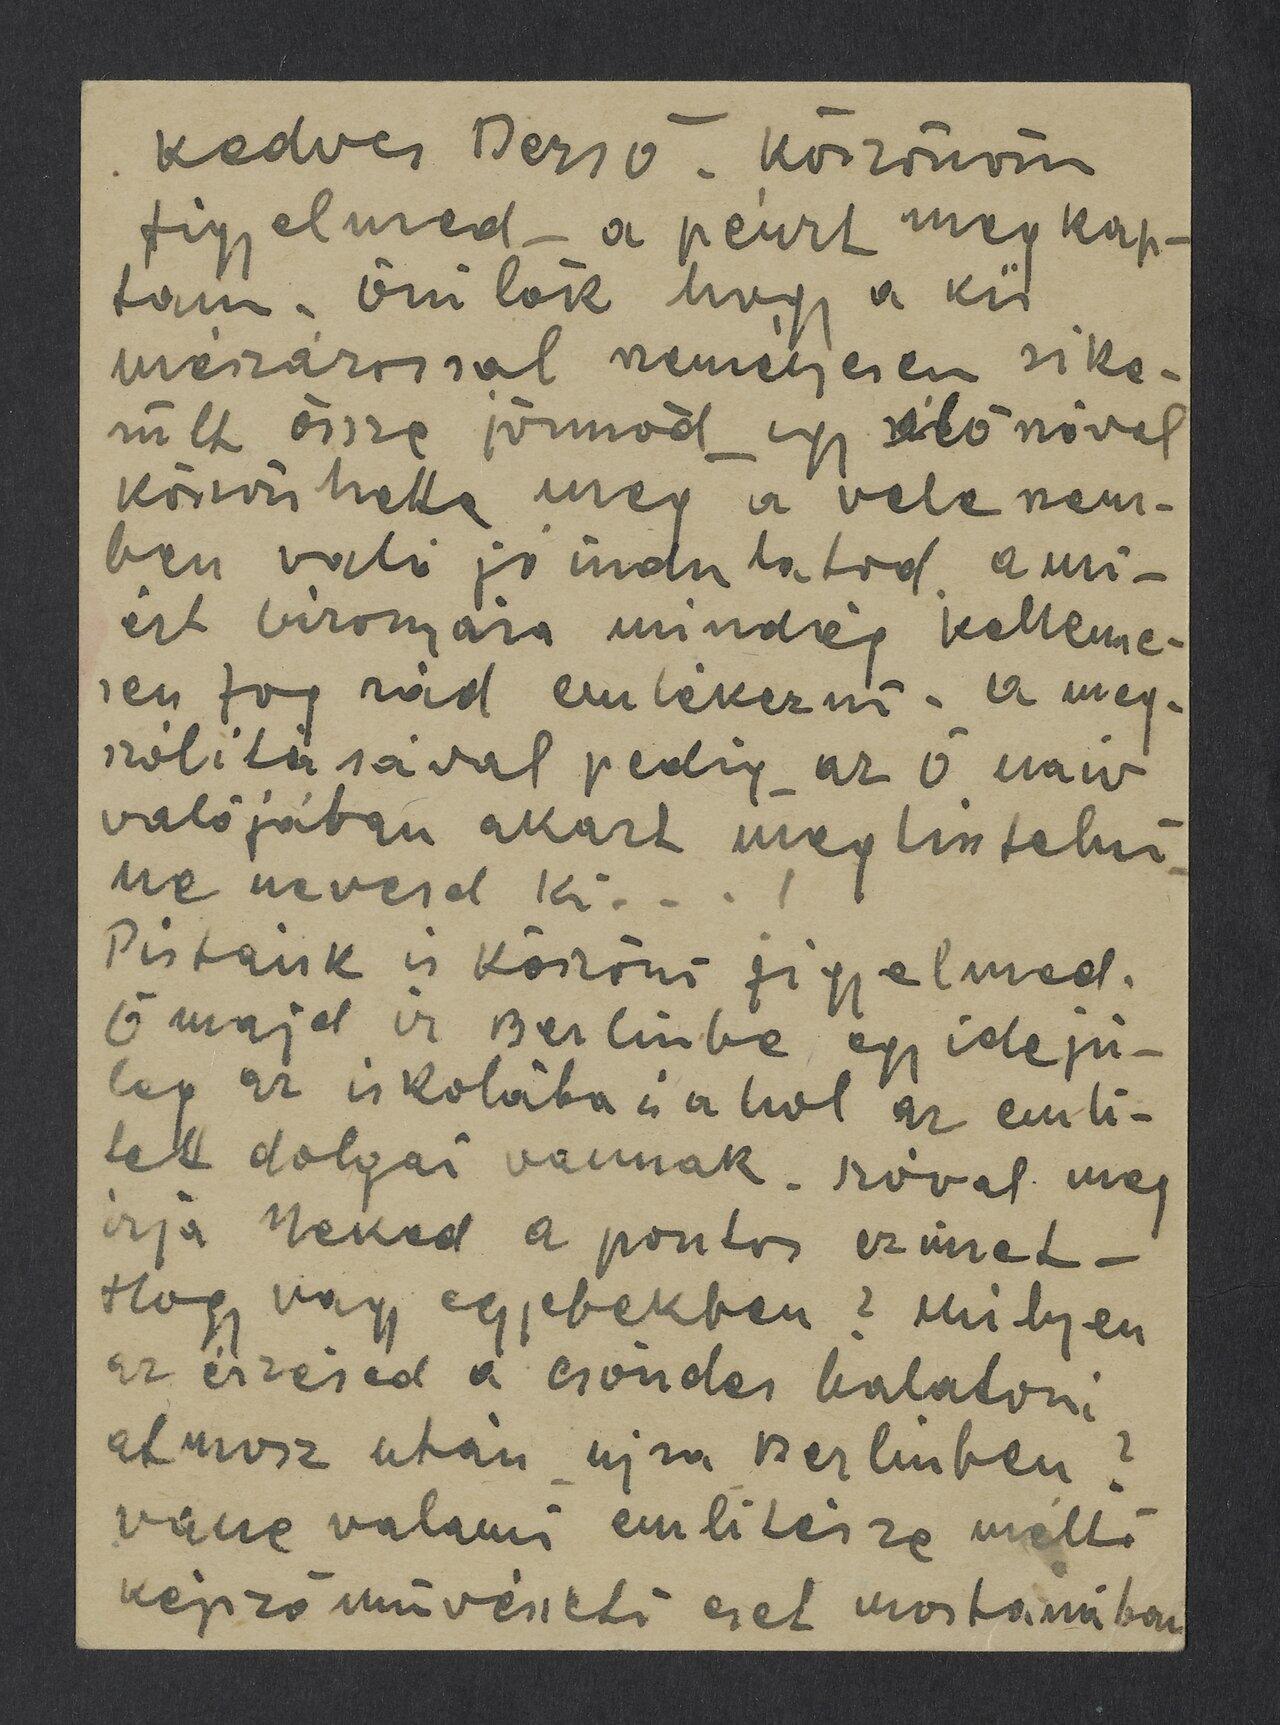 Kedves Dersö. Köszönöm
figyelmed – a pénzt megkap-
tam. Örülök hogy a kis
mészárossal személyesen sike-
rült össze jönnöd – egy szóval
köszönhette meg a vele szem-
ben való jó indulatod, ami-
ért bizonyára mindég kelleme-
sen fog rád emlékezni. a meg-
szólításával pedig – az ő naiv
valójában akart megtisztelni –
ne nevesd ki . . . !
Pistánk is köszöni figyelmed.
Ő majd ír Berlinbe egyidejü-
leg az iskolába is ahol az emlí-
tett dolgai vannak. szóval meg
írja Neked a pontos címet –
Hogy vagy egyebekben? Milyen
az érzésed a csöndes balatoni
atmosz után – ujra Berlinben?
vane valami említésre méltó
képzőmüvészeti eset mostanában